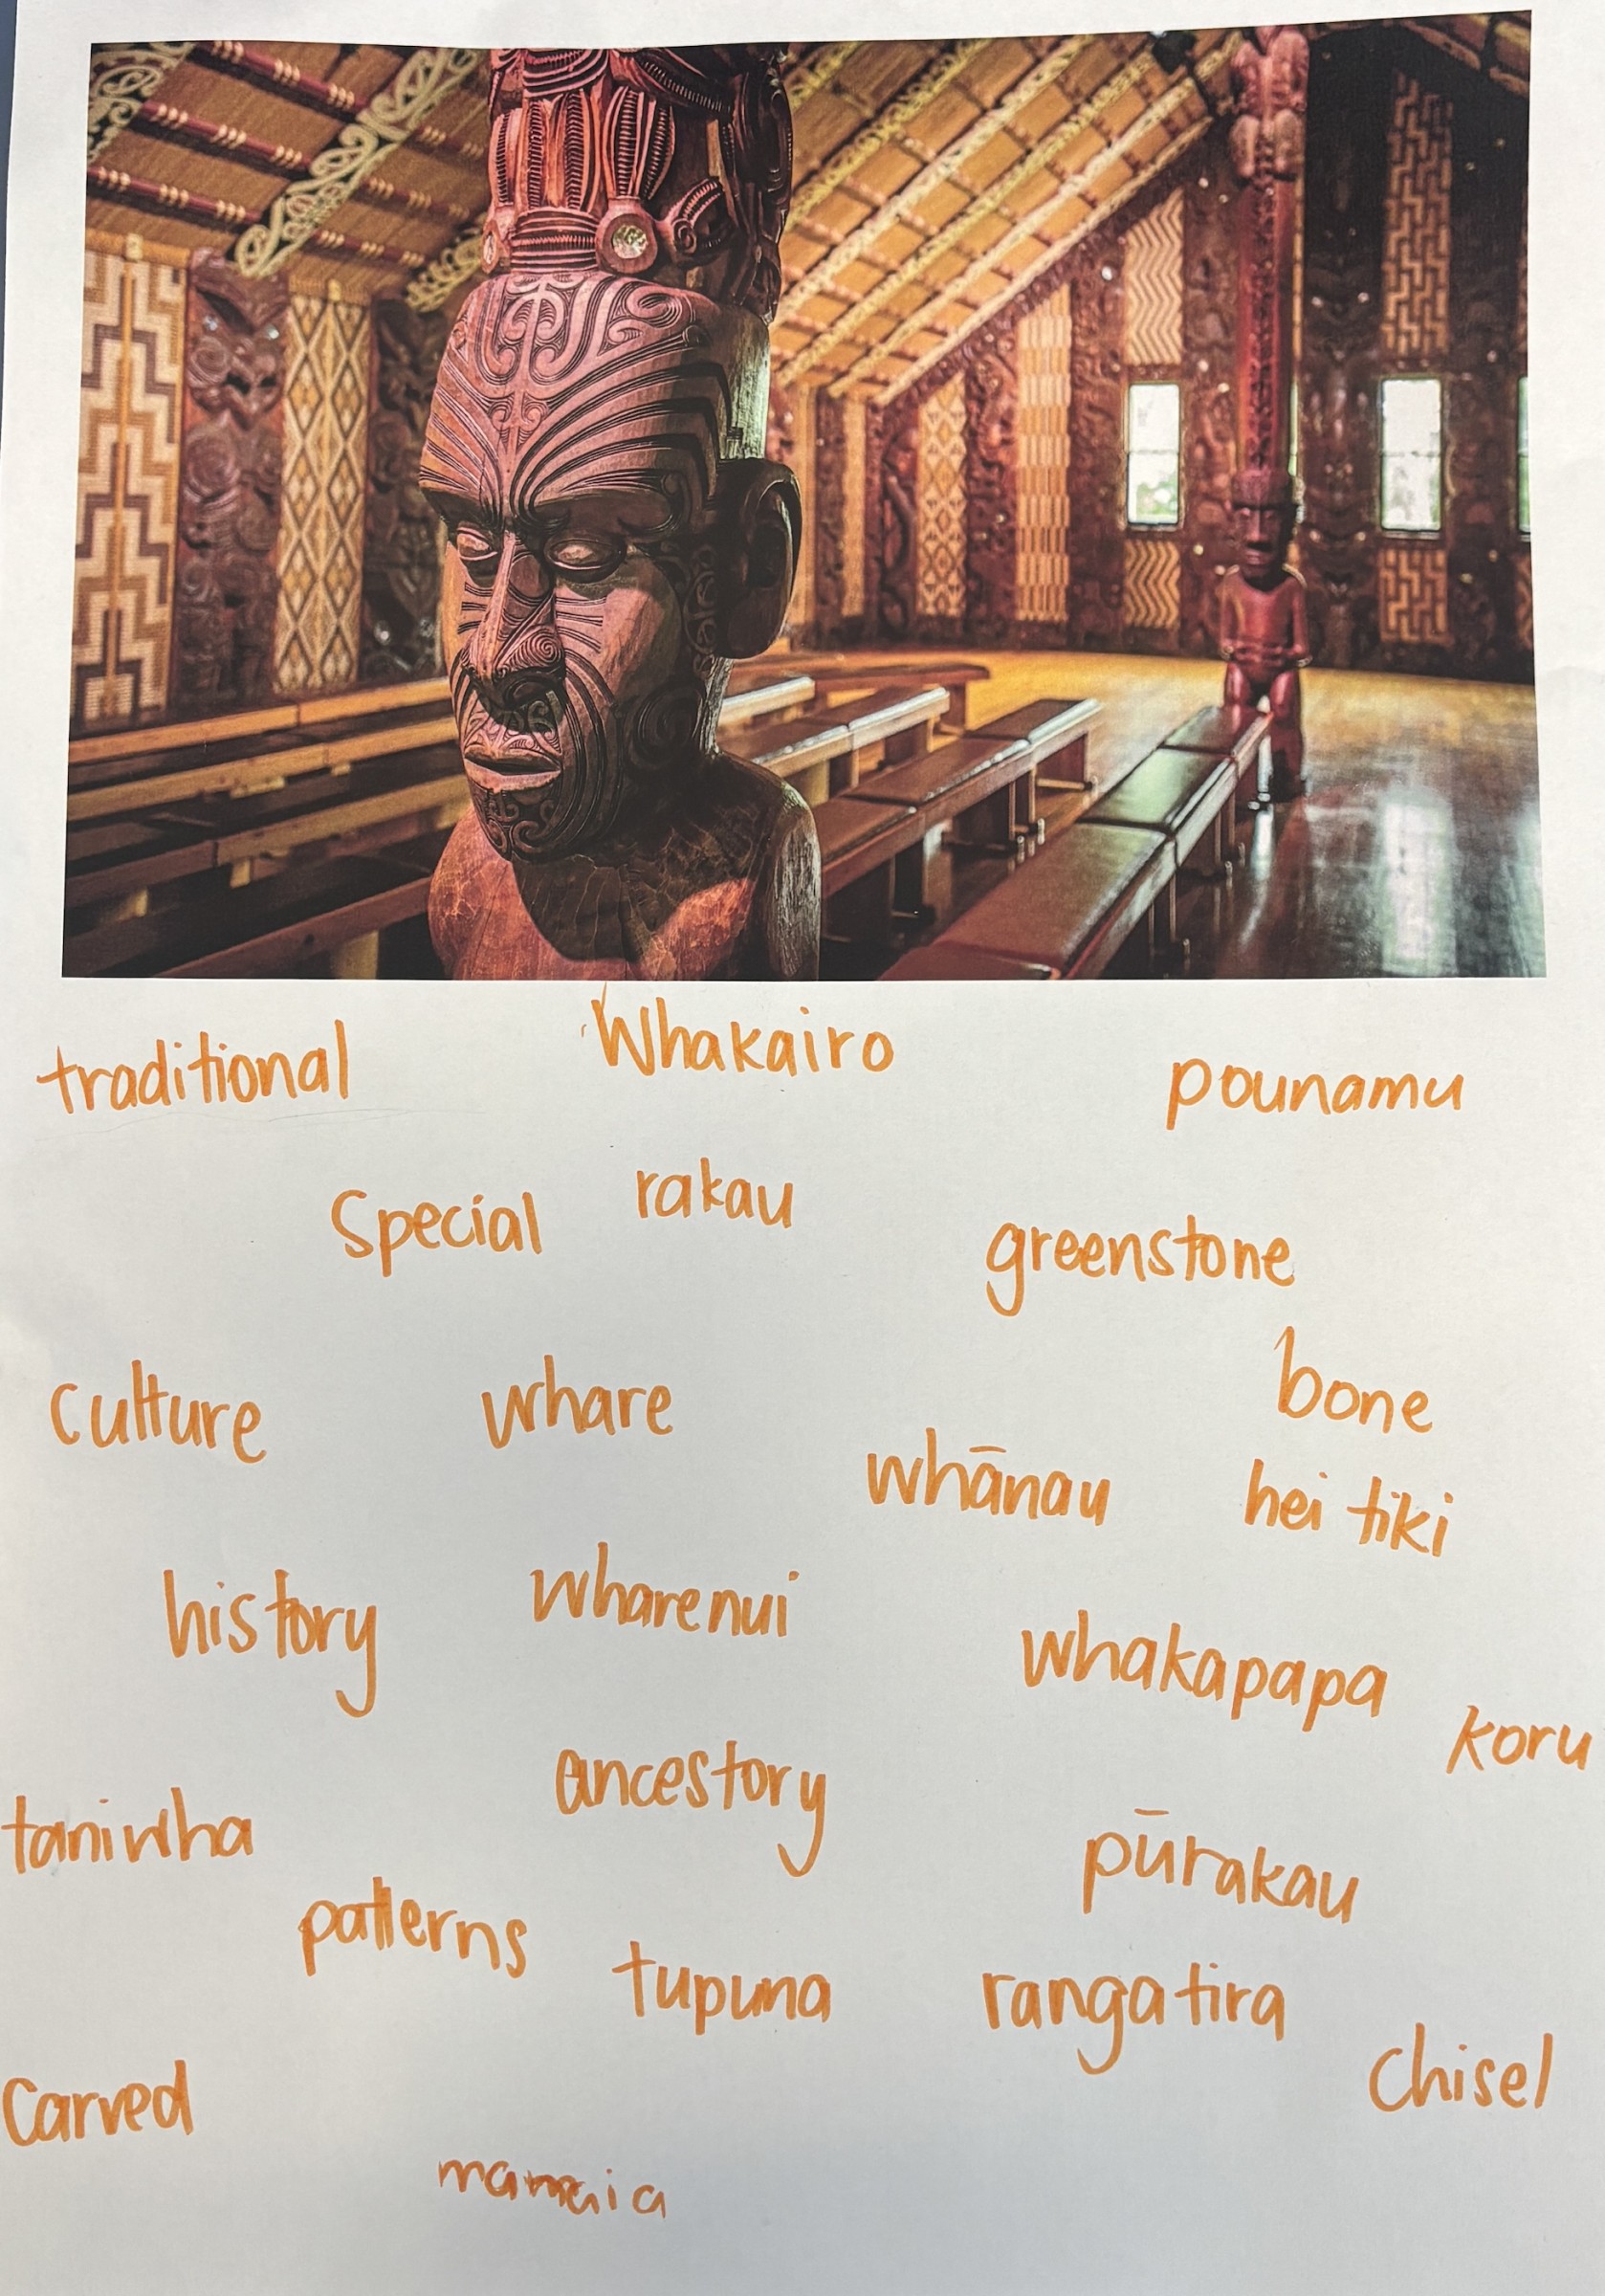 traditional
Whakairo
pounamu
Special
rakau
greenstone
culture
whare
bone
whānau
hei tiki
history
wharenui
whakapapa
koru
ancestory
taniwha
pūrakau
patterns
tupuna
rangatira
chisel
Carved